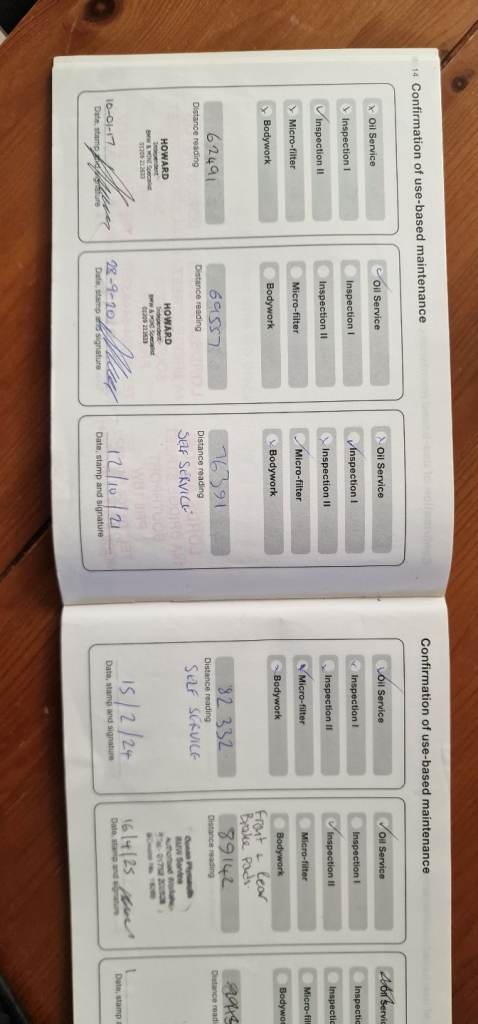 14 Confirmation of use-based maintenance
Oil Service
Inspection I
Inspection II
Micro-filter
Bodywork
62491
Distance reading
HOWARD
Independent
BMW & MINI Specialist
01209 213633
10-01-17
Date, stamp and signature
Oil Service
Inspection I
Inspection II
Micro-filter
Bodywork
69557
Distance reading
HOWARD
Independent
BMW & MINI Specialist
01209 213633
28-9-20
Date, stamp and signature
Oil Service
Inspection I
Inspection II
Micro-filter
Bodywork
76391
Distance reading
SELF SERVICE
12/10/21
Date, stamp and signature
Confirmation of use-based maintenance
Oil Service
Inspection I
Inspection II
Micro-filter
Bodywork
82 332
Distance reading
SELF SERVICE
15/2/24
Date, stamp and signature
Oil Service
Inspection I
Inspection II
Micro-filter
Bodywork
Front + Rear
Brake Pads
89142
Distance reading
Plymouth
BMW Service
16/4/25
Date, stamp and signature
Oil Servic
Inspectic
Inspectic
Micro-fil
Bodywo
Distance readi
Date, stamp a